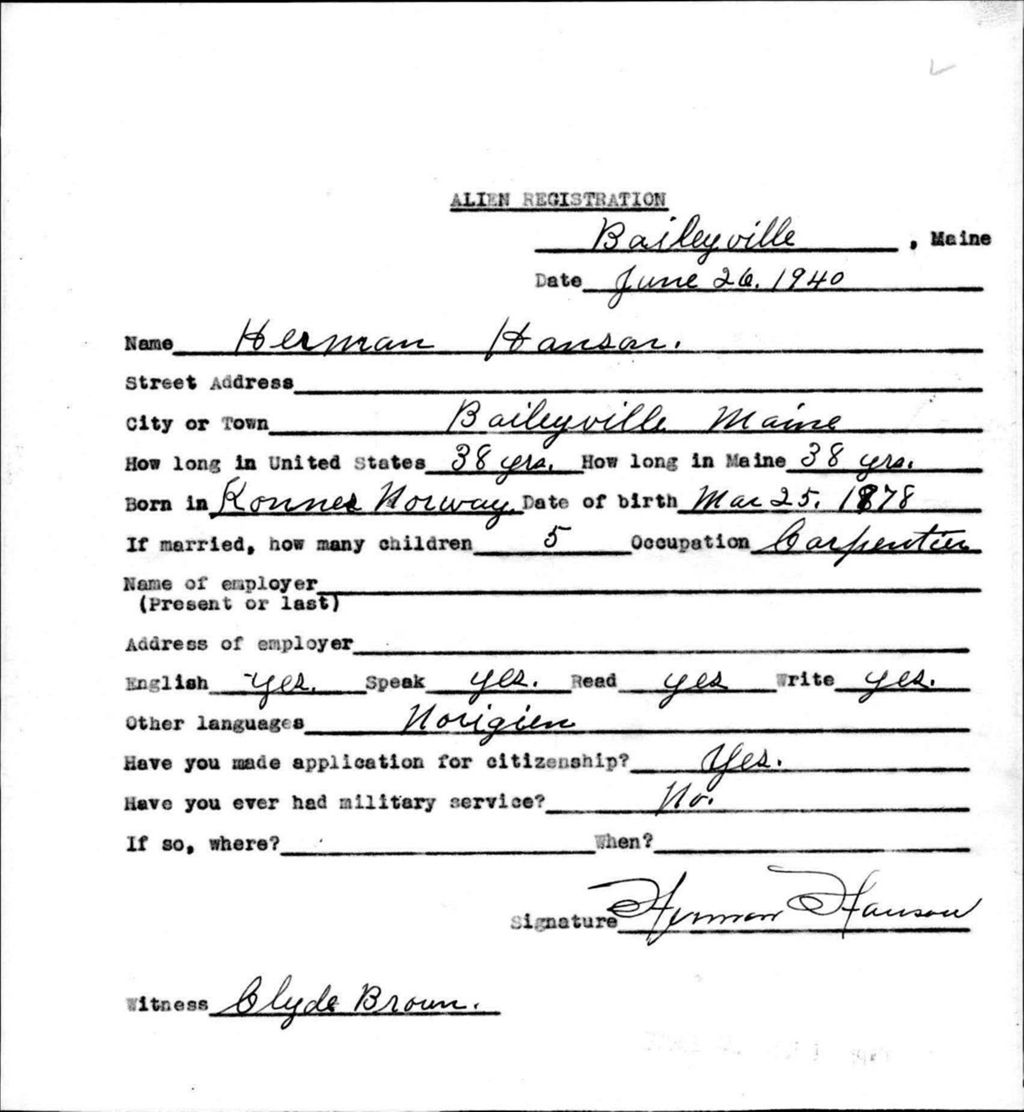 ALIEN REGISTRATION
Baileyville, Maine
Date June 26. 1940
Name Herman Hanson.
Street Address
City or Town Baileyville Maine
How long in United States 38 yrs. How long in Maine 38 yrs.
Born in Konnes Norway. Date of birth Mar 25. 1878
If married, how many children 5 Occupation Carpentier
Name of employer
(Present or last)
Address of employer
English yes. Speak yes. Read yes Write yes.
Other languages Norigien
Have you made application for citizenship? Yes.
Have you ever had military service? No.
If so, where? When?
Signature Herman Hanson
Witness Clyde Brown.